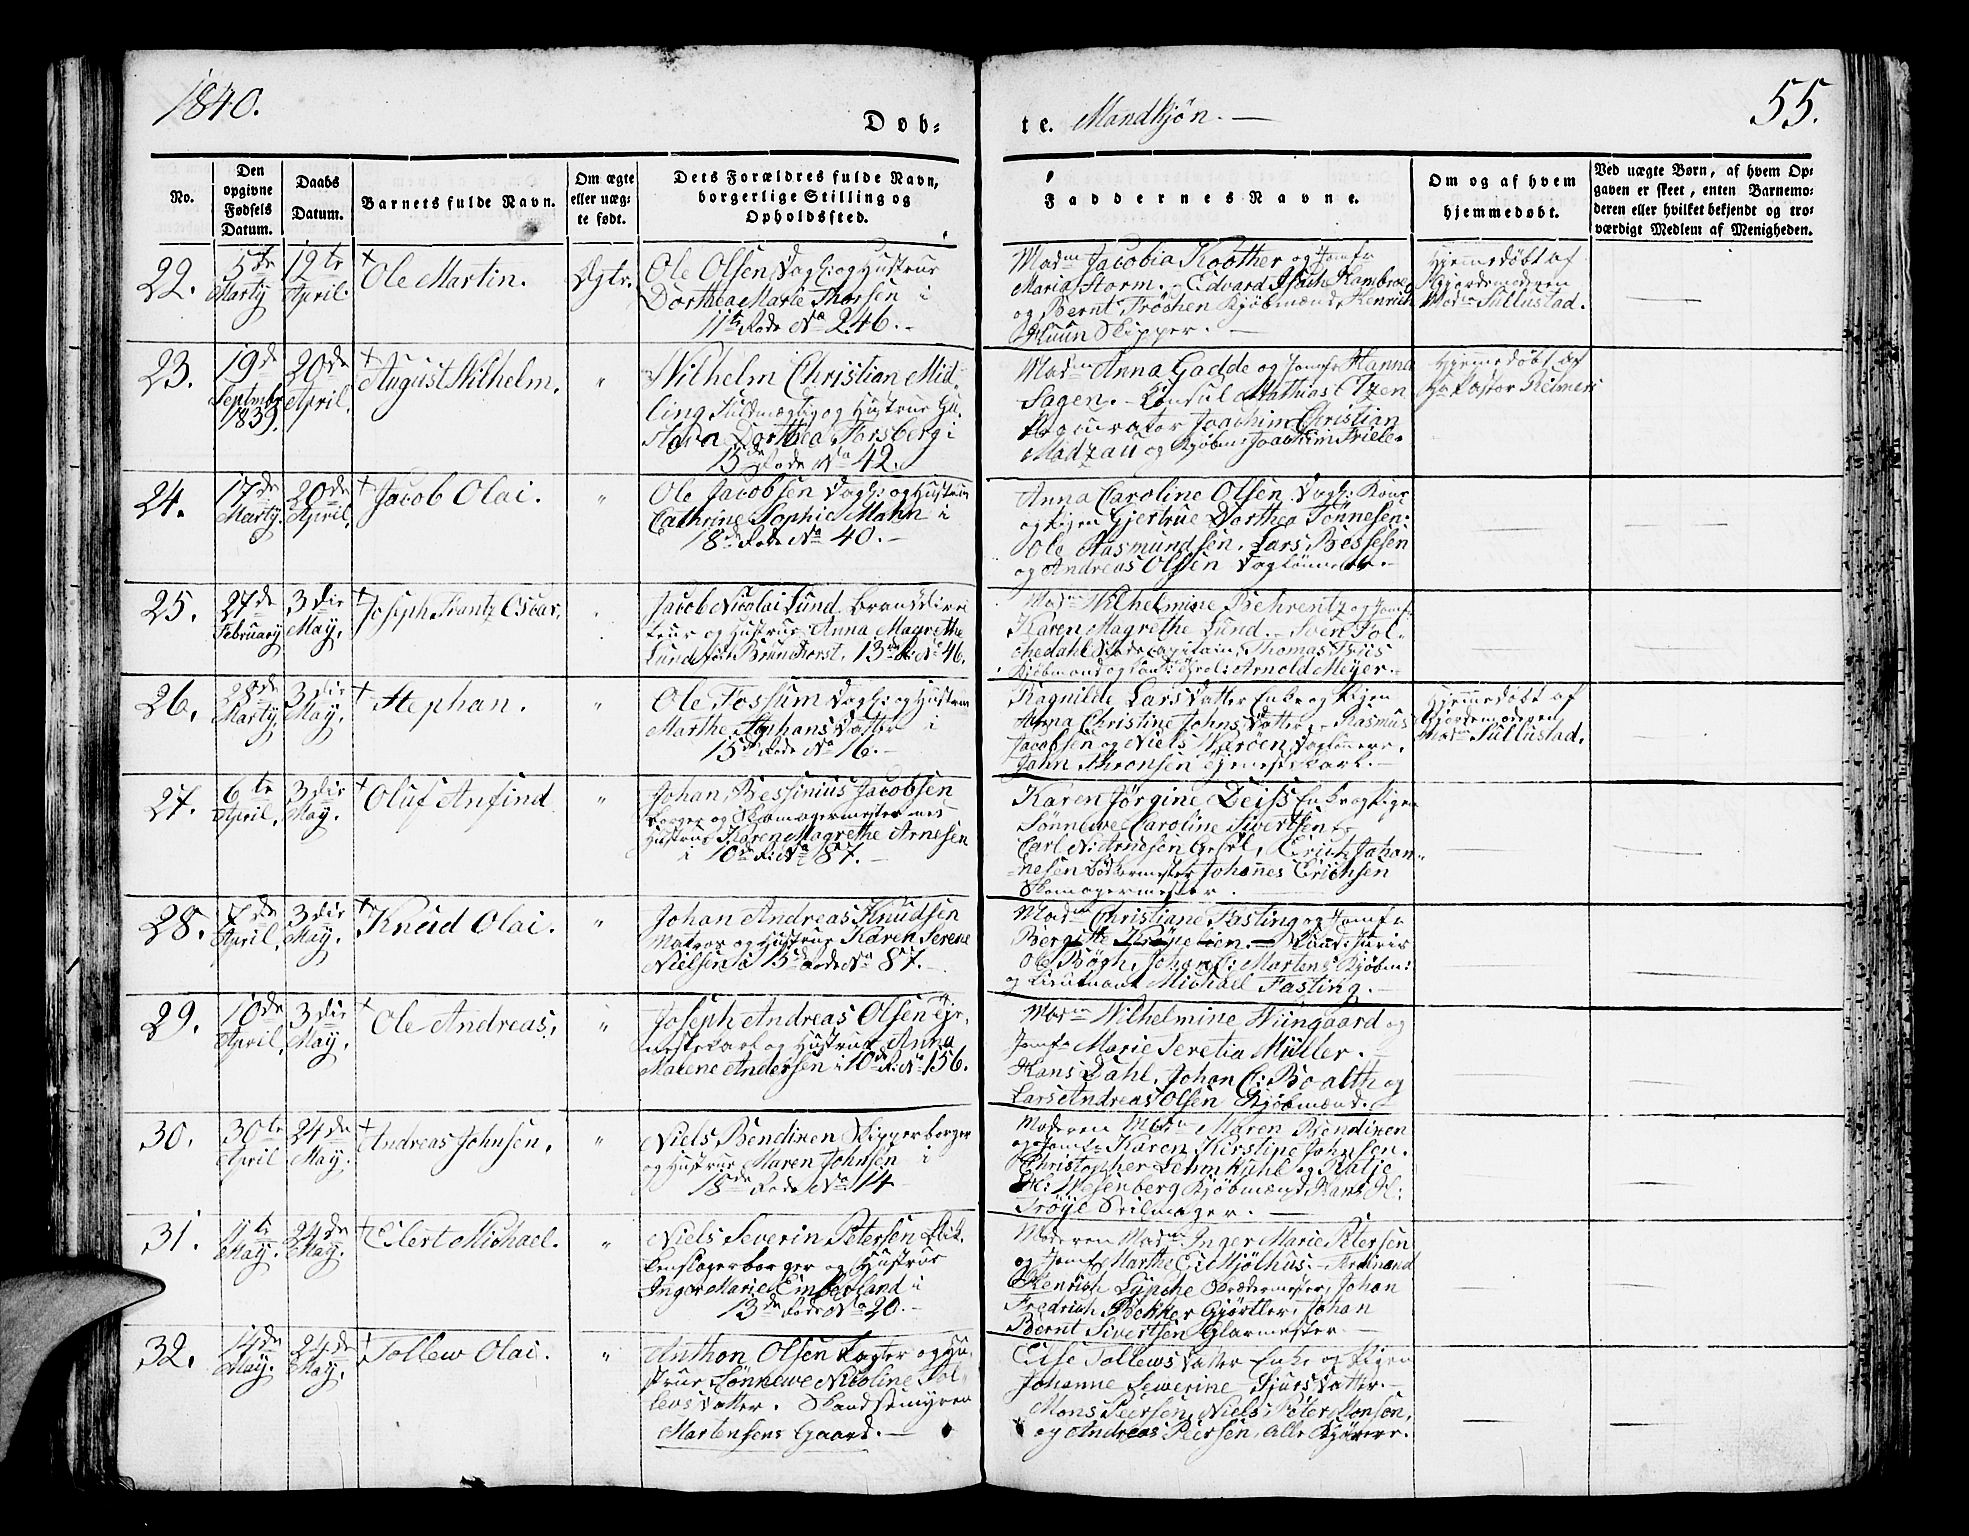 1840.
Døb-
te. Mandkjøn. —
55.
No.
Den opgivne Fødsels Datum.
Daabs Datum.
Barnets fulde Navn.
Om ægte eller uægte født.
Dets Forældres fulde Navn, borgerlige Stilling og Opholdssted.
Faddernes Navne.
Om og af hvem hjemmedøbt.
Ved uægte Børn, af hvem Op-
gaven er skeet, enten Barnemo-
deren eller hvilket bekjendt og tro-
værdigt Medlem af Menigheden.
22.
5te Marty
12te April.
Ole Martin.
Ægtr.
Ole Olsen Dagl: og Hustrue
Dorthea Marie Thorsen i
11te Rode No 246. –
Madm Jacobia Koother og Jomfr
Maria Storm. – Edvard
og Bernt Kjøbmænd, Henrich
Skipper. —
Hjemmedøbt af
Gjordemoderen
Madm Sullustad.
23.
19de Septmbr 1839.
20de April.
August Wilhelm.
"
Wilhelm Christian Mid-
ling Fuldmægtig og Hustrue Gu-
stava Dorthea Forsberg i
15de Rode No 42.
Madm Anna Gadde og Jomfr Hanna
Sagen. – Consul Mathias
Procurator Joachim Christian
og Kjøbm: Joachim Friele.
Hjemmedøbt af
Hr Pastor Reimers
24.
17de Marty.
20de April.
Jacob Olai.
"
Ole Jacobsen Dagl: og Hustrue
Cathrine Sophie Mann i
18de Rode No 40. –
Anna Caroline Olsen Dagl: Kone
og Pigen Gjertrue Dorthea Tønnesen.
Ole Aasmundsen, Lars Bessesen
og Andreas Olsen Daglønnere.
25.
27de February
3die May.
Joseph Frantz Oscar.
"
Jacob Nicolai Lund
og Hustrue Anna Magrethe
Lund født Brunchorst, 13de R: No 46.
Madm Wilhelmine Behrentz og Jomfr
Karen Magrethe Lund. – Sven Fol-
chedahl Thomas Friis
Kjøbmand og Arnold Meyer. –
26.
28de Marty.
3die May.
Stephan.
"
Ole Fossum Dagl: og Hustrue
Marthe Stephans Datter i
15de Rode No 16. –
Ragnilde Lars Datter Enke og Pigen
Anna Christine Johns Datter. – Rasmus
Jacobsen og Niels Daglønnere.
John Thronsen Tjenestekarl. –
Hjemmedøbt af
Gjordemoderen
Madm Sullustad.
27.
6te April.
3die May.
Oluf Anfind
"
Johan Bessinius Jacobsen
Borger og Skomagermester med
Hustrue Karen Magrethe Arnesen
i 10de R: No 87. –
Karen Jørgine Deiss Enke og Pigen
Sønnewe Caroline Sivertsen,
Carl N: Arnesen Gesel, Erich Johan-
nesen Bødkermester, Johannes Erichsen
Skomagermester.
28.
7de April.
3die May.
Knud Olai.
"
Johan Andreas Knudsen
Matros og Hustrue Karen Serene
Nielsen i 15de Rode No 87. –
Madm Christiane Fasting og Jomfr
Bergitte Krøpelien. –
Ole Bøgh, Johan C: Martens Kjøbm:
og Lieutnant Michael Fasting. –
29.
10de April.
3die May.
Ole Andreas.
"
Joseph Andreas Olsen Tje-
nestekarl og Hustrue Anna
Malene Andersen i 10de R: No 156.
Madm Wilhelmine Wiingaard og
Jomfr Marie Seretia Müller. –
Hans Dahl, Johan C: Boalth og
Lars Andreas Olsen Kjøbmænd. –
30.
30te April
24de May.
Andreas Johnsen.
"
Niels Bendixen Skipperborger
og Hustrue Maren Johnsen i
18de Rode No 14
Moderen Madm Maren Bendixen
og Jomfr Karen Kirstine Johnsen.
Christopher Lehmkuhl og Ratje
H: Wesenberg Kjøbmænd, Hans H:
Trøye Seilmager. —
31.
11te May.
24de May.
Eilert Michael.
"
Niels Severin Petersen Blik-
kenslagerborger og Hustrue
Inger Marie Emberland i
13de Rode No 20. –
Moderen Madm Inger Marie Petersen
og Jomfr Marthe E: Mjølhus. – Ferdinand
Henrich Lypche Skrædermester, Johan
Fredrich Bekker Gjørtler, Johan
Bernt Sivertsen Glarmester. —
32.
14de May.
24de May.
Tollew Olai.
"
Anthon Olsen og Hu-
strue Sønnewe Nicoline Tol-
lews Datter. Skandsemyren
Martensens Gaard. –
Else Tollews Datter Enke og Pigen
Johanne Sewerine Sjurs Datter. –
Mons Peersen, Niels Peter Monsen,
og Andreas Peersen, alle Kjørere.